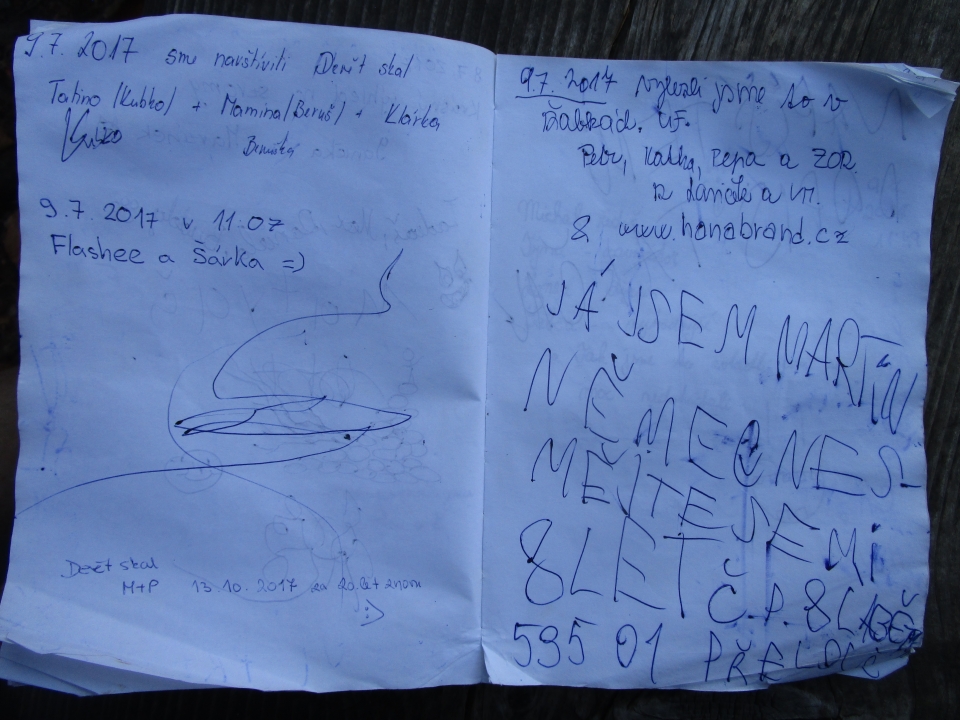 9.7. 2017 smu navštívili Devět skal
Tatino (Kubko) + Mamina (Beruš) + Klárka
9.7. 2017 v 11:07
Flashee a Šárka =)
Devět skal
M+P 13.10.2017 za 20 let znovu
:)
9.7. 2017 vylezli jsme to v
Petr, Katka, Pepa a
& www.hanabrand.cz
JÁ JSEM MARTIN
NĚMEC DNES
MĚJTE SE MI
8 LET Č.P. 8
595 01 PŘELOUČ